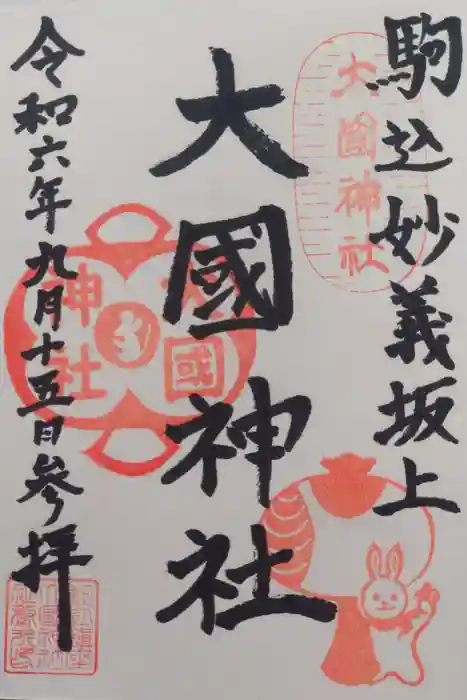 駒込妙義坂上
大國神社
令和六年九月十五日参拝
大國神社
大國神社